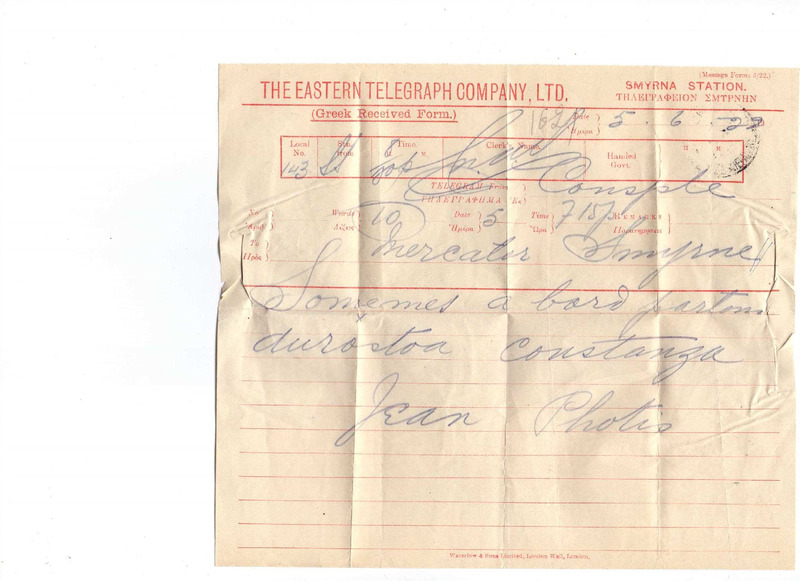 (Message Form: 5/22.)
THE EASTERN TELEGRAPH COMPANY, LTD. SMYRNA STATION.
ΤΗΛΕΓΡΑΦΕΙΟΝ ΣΜΥΡΝΗΝ
(Greek Received Form.) 162 Date Ημέρα } 5 . 6 . 22
Local No. Stn. from Time. M. Clerk's Name. Handed Govt. H M
143 St 8
TELEGRAM From
ΤΗΛΕΓΡΑΦΗΜΑ Ἐκ } Consple
No Words 10 Date 5 Time 715 REMARKS
Ἀριθ Λέξεις Ἡμέρα Ὥρα Παρατηρήσεις
To
Πρὸς } Mercator Smyrne
Somemes a bord partons
durostoa constanza
Jean Photis
Waterlow & Sons Limited, London Wall, London.